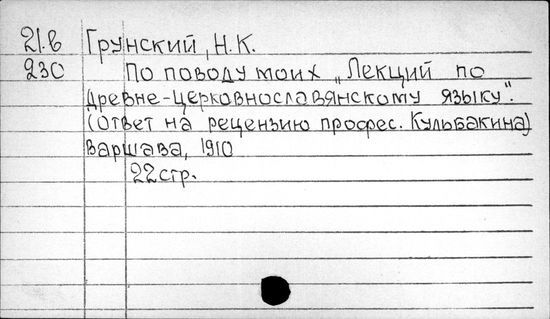 21.в Грунский, Н.К.
230 По поводу моих „Лекций по
древне-церковнославянскому языку".
(Ответ на рецензию професс. Кульбакина)
Варшава, 1910
22 стр.